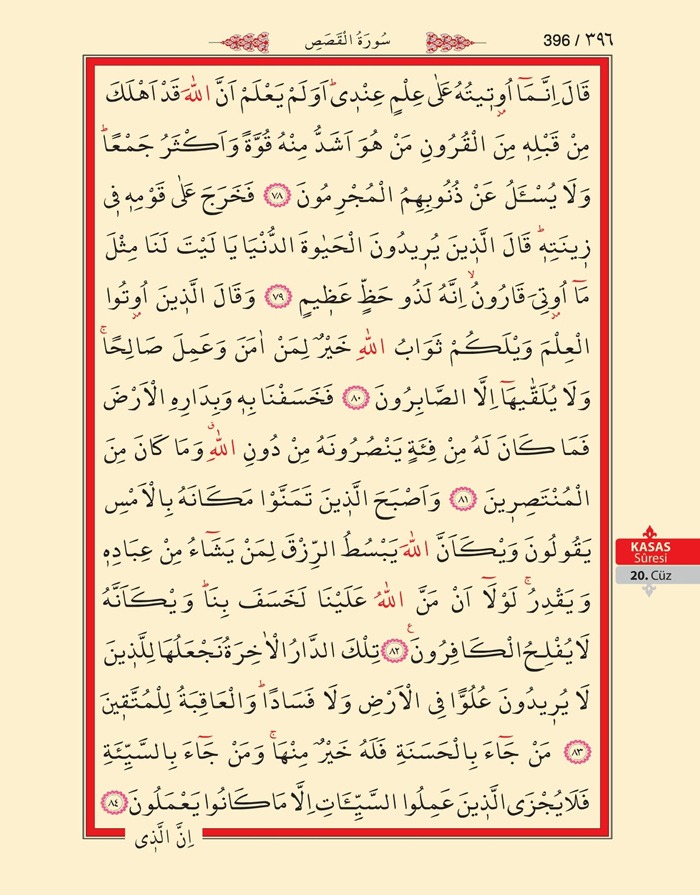 396 / ٣٩٦
سُورَةُ الْقَصَصِ
قَالَ اِنَّمَٓا اُو۫ت۪يتُهُ عَلٰى عِلْمٍ عِنْد۪يۜ اَوَلَمْ يَعْلَمْ اَنَّ اللّٰهَ قَدْ اَهْلَكَ
مِنْ قَبْلِه۪ مِنَ الْقُرُونِ مَنْ هُوَ اَشَدُّ مِنْهُ قُوَّةً وَاَكْثَرُ جَمْعًاۜ
وَلَا يُسْـَٔلُ عَنْ ذُنُوبِهِمُ الْمُجْرِمُونَ ﴿٧٨﴾ فَخَرَجَ عَلٰى قَوْمِه۪ ف۪ي
ز۪ينَتِه۪ۜ قَالَ الَّذ۪ينَ يُر۪يدُونَ الْحَيٰوةَ الدُّنْيَا يَا لَيْتَ لَنَا مِثْلَ
مَٓا اُو۫تِيَ قَارُونُۙ اِنَّهُ لَذُو حَظٍّ عَظ۪يمٍ ﴿٧٩﴾ وَقَالَ الَّذ۪ينَ اُو۫تُوا
الْعِلْمَ وَيْلَكُمْ ثَوَابُ اللّٰهِ خَيْرٌ لِمَنْ اٰمَنَ وَعَمِلَ صَالِحًاۚ
وَلَا يُلَقّٰيهَٓا اِلَّا الصَّابِرُونَ ﴿٨٠﴾ فَخَسَفْنَا بِه۪ وَبِدَارِهِ الْاَرْضَ
فَمَا كَانَ لَهُ مِنْ فِئَةٍ يَنْصُرُونَهُ مِنْ دُونِ اللّٰهِۗ وَمَا كَانَ مِنَ
الْمُنْتَصِر۪ينَ ﴿٨١﴾ وَاَصْبَحَ الَّذ۪ينَ تَمَنَّوْا مَكَانَهُ بِالْاَمْسِ
يَقُولُونَ وَيْكَاَنَّ اللّٰهَ يَبْسُطُ الرِّزْقَ لِمَنْ يَشَٓاءُ مِنْ عِبَادِه۪
وَيَقْدِرُۚ لَوْلَٓا اَنْ مَنَّ اللّٰهُ عَلَيْنَا لَخَسَفَ بِنَاۜ وَيْكَاَنَّهُ
لَا يُفْلِحُ الْكَافِرُونَ۟ ﴿٨٢﴾ تِلْكَ الدَّارُ الْاٰخِرَةُ نَجْعَلُهَا لِلَّذ۪ينَ
لَا يُر۪يدُونَ عُلُوًّا فِي الْاَرْضِ وَلَا فَسَادًاۜ وَالْعَاقِبَةُ لِلْمُتَّق۪ينَ
﴿٨٣﴾ مَنْ جَٓاءَ بِالْحَسَنَةِ فَلَهُ خَيْرٌ مِنْهَاۚ وَمَنْ جَٓاءَ بِالسَّيِّئَةِ
فَلَا يُجْزَى الَّذ۪ينَ عَمِلُوا السَّيِّـَٔاتِ اِلَّا مَا كَانُوا يَعْمَلُونَ ﴿٨٤﴾
اِنَّ الَّذ۪ي
KASAS
Sûresi
20. Cüz